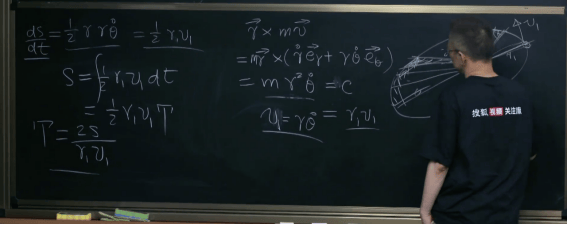 ds/dt = 1/2 r rθ̇ = 1/2 r₁υ₁
S = ∫ 1/2 r₁υ₁ dt
= 1/2 r₁υ₁ T
T = 2S/r₁υ₁
r⃗ × mυ⃗
= mr⃗ × (ṙe⃗r + rθ̇e⃗θ)
= mr²θ̇ = c
υ₁ = rθ̇ = r₁υ₁
υ₁
r₁
搜狐 视频 关注流